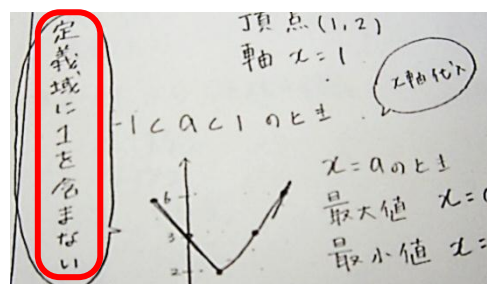 定義域に1を含まない
頂点(1,2)
軸 x=1
x軸代入
-1<a<1のとき
x=aのとき
最大値 x=
最小値 x=
6
3
2